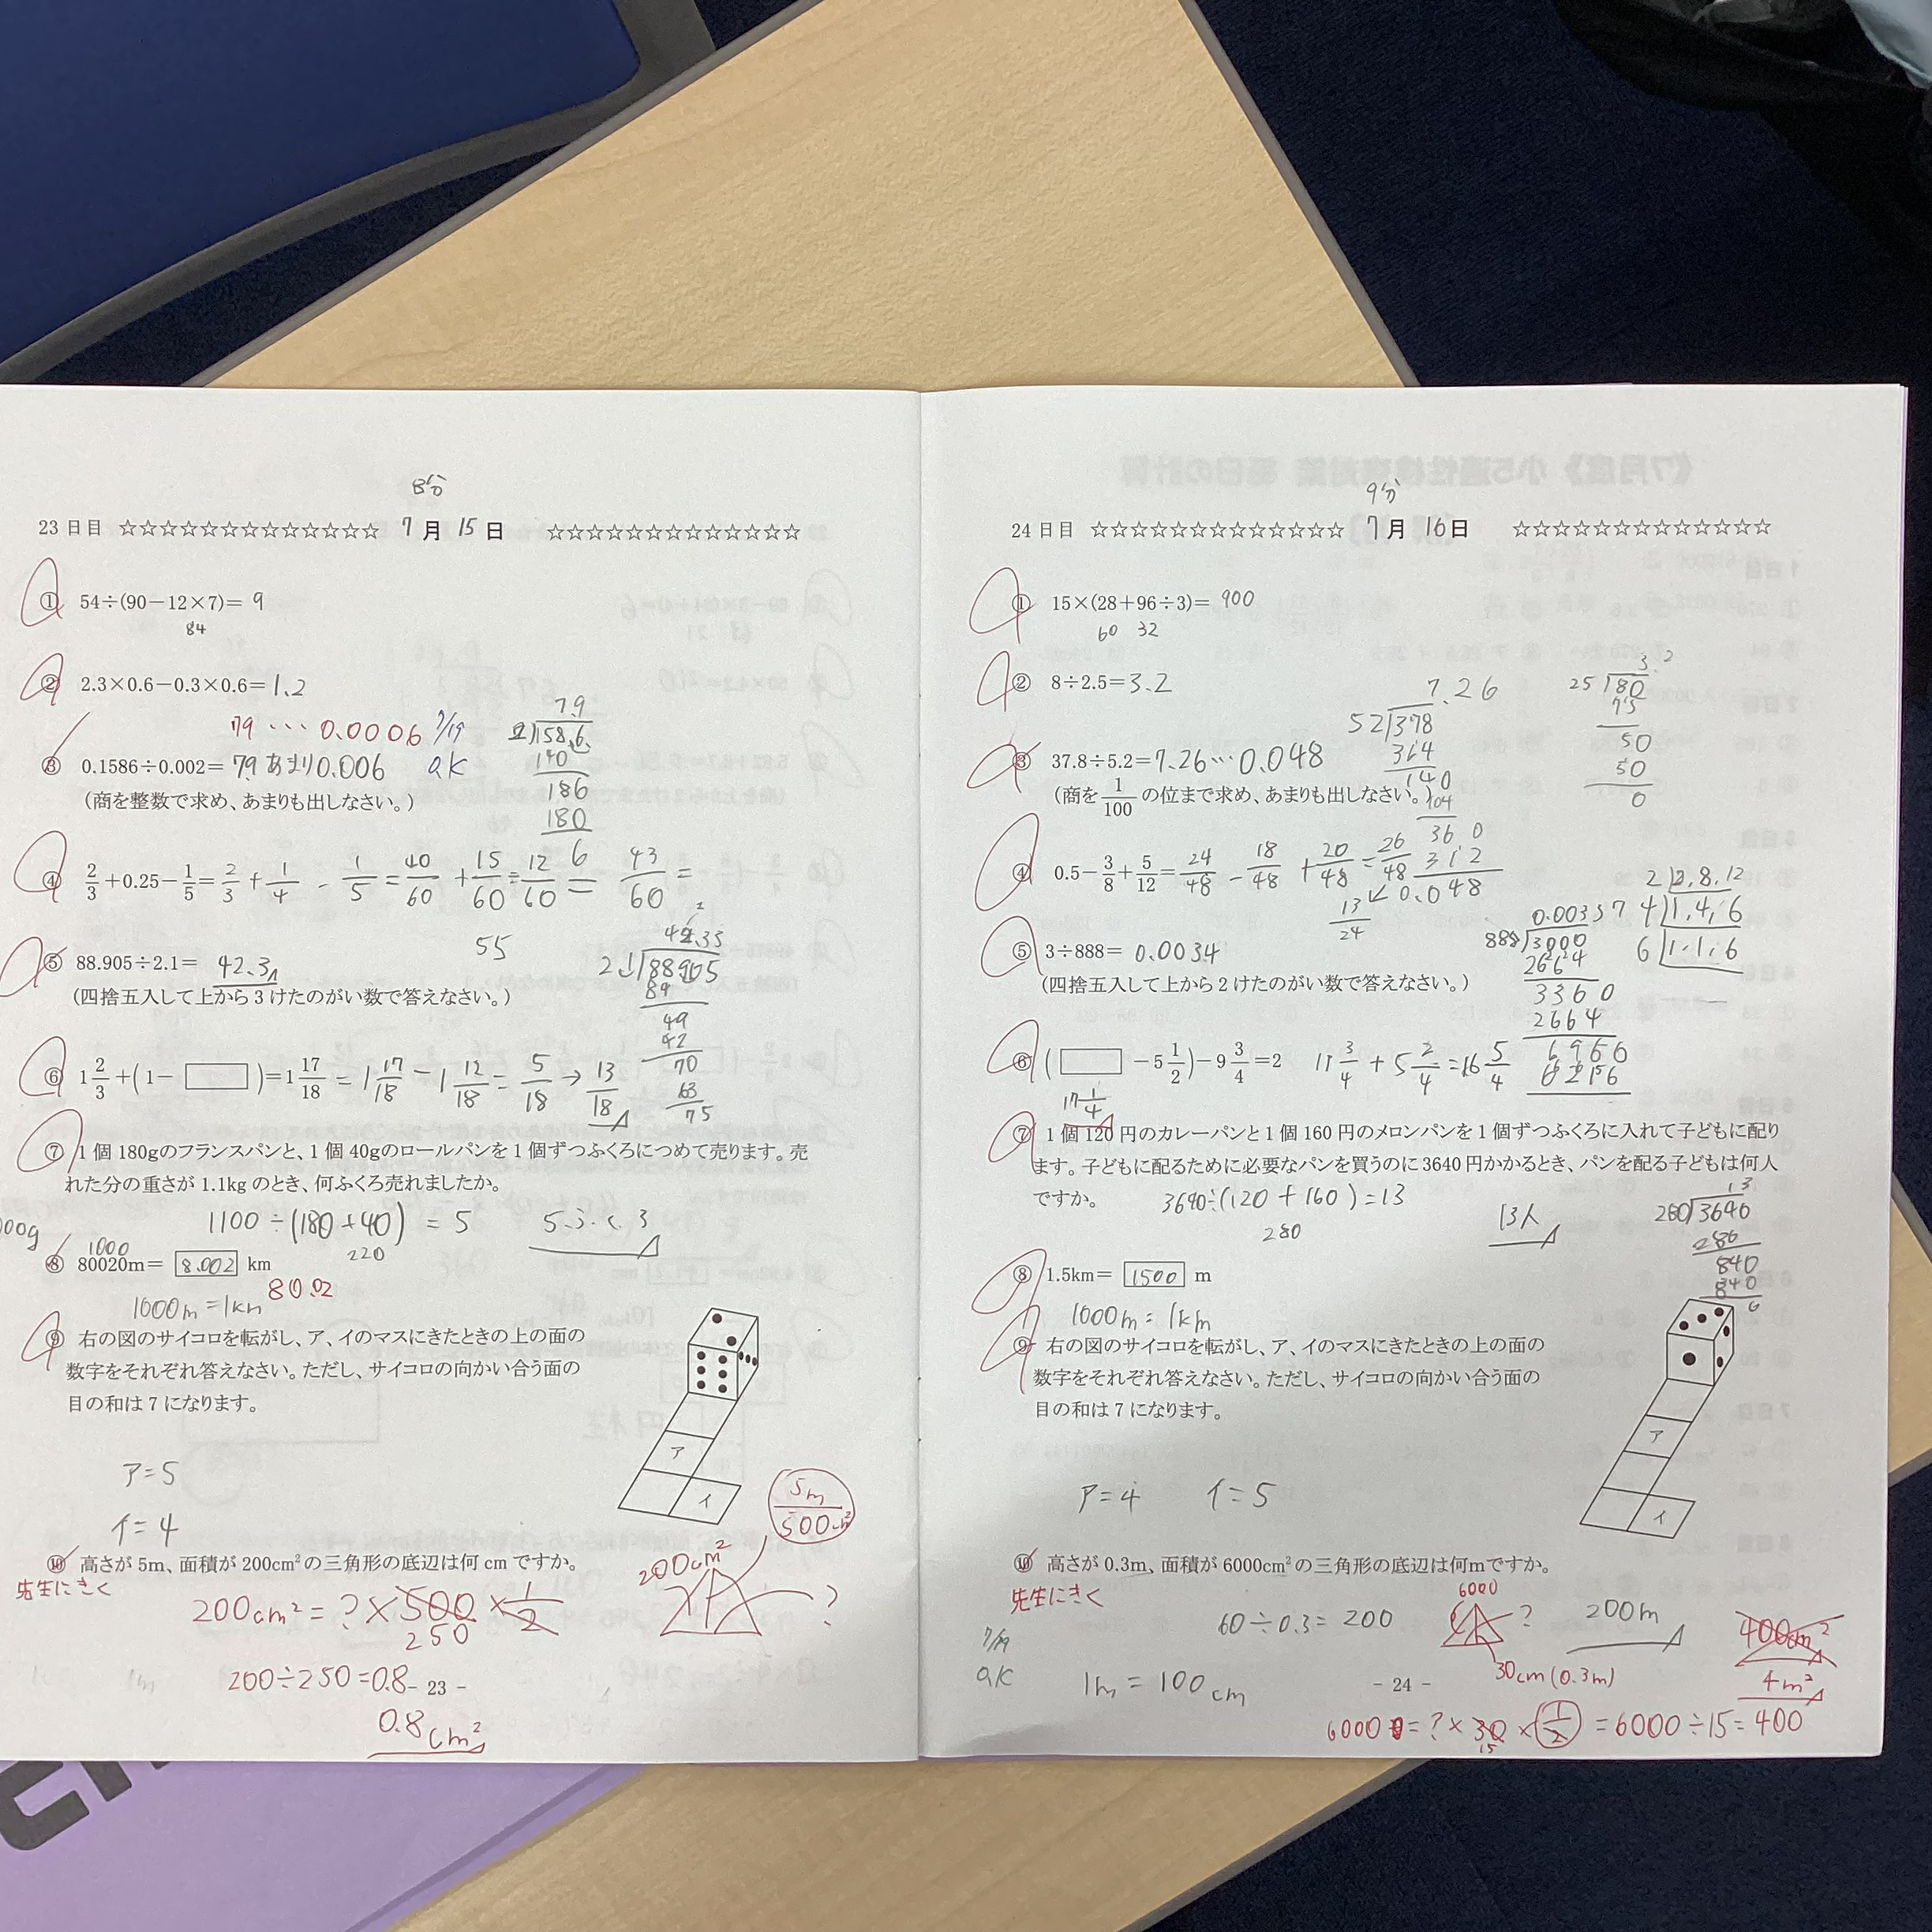 8分
23 日目 ☆☆☆☆☆☆☆☆☆☆☆☆☆ 7 月 15 日 ☆☆☆☆☆☆☆☆☆☆☆☆☆
① 54÷(90−12×7)= 9
84
② 2.3×0.6−0.3×0.6= 1.2
79 … 0.0006 7/19
③ 0.1586÷0.002= 79 あまり0.006 OK
(商を整数で求め、あまりも出しなさい。)
79
2)158.6
140
186
180
6
④ 2/3+0.25−1/5= 2/3 + 1/4 − 1/5 = 40/60 + 15/60 − 12/60 = 43/60
55
⑤ 88.905÷2.1= 42.3
(四捨五入して上から 3 けたのがい数で答えなさい。)
42.33
21)88905
84
49
42
70
63
75
⑥ 1 2/3+(1− □ )=1 17/18 = 1 17/18 − 1 12/18 = 5/18 → 13/18
⑦ 1 個 180gのフランスパンと、1 個 40gのロールパンを 1 個ずつふくろにつめて売ります。売
れた分の重さが 1.1kg のとき、何ふくろ売れましたか。
1100÷(180+40) = 5 5ふくろ
220
000g
1000
⑧ 80020m= 8.002 km
80.02
1000m = 1km
⑨ 右の図のサイコロを転がし、ア、イのマスにきたときの上の面の
数字をそれぞれ答えなさい。ただし、サイコロの向かい合う面の
目の和は 7 になります。
ア
イ
ア=5
イ=4
5m
500cm²
⑩ 高さが 5m、面積が 200cm²の三角形の底辺は何 cm ですか。
先生にきく
200cm² = ? × 500 × 1/2
250
200cm²
?
200÷250=0.8
0.8cm²
- 23 -
9分
24 日目 ☆☆☆☆☆☆☆☆☆☆☆☆☆ 7 月 16 日 ☆☆☆☆☆☆☆☆☆☆☆☆☆
① 15×(28+96÷3)= 900
60 32
② 8÷2.5= 3.2
3.2
25)80
75
50
50
0
③ 37.8÷5.2= 7.26…0.048
(商を1/100の位まで求め、あまりも出しなさい。)
7.26
52)378
364
140
104
360
312
0.048
④ 0.5−3/8+5/12= 24/48 − 18/48 + 20/48 = 26/48
13/24
2)2,8,12
4)1,4,6
6)1,1,6
⑤ 3÷888= 0.0034
(四捨五入して上から 2 けたのがい数で答えなさい。)
0.00337
888)3000
2664
3360
2664
6960
6216
⑥ ( □ −5 1/2)−9 3/4=2 11 3/4 + 5 2/4 = 16 5/4
17 1/4
⑦ 1 個 120 円のカレーパンと 1 個 160 円のメロンパンを 1 個ずつふくろに入れて子どもに配り
ます。子どもに配るために必要なパンを買うのに 3640 円かかるとき、パンを配る子どもは何人
ですか。
3640÷(120+160)=13 13人
280
13
280)3640
280
840
840
0
⑧ 1.5km= 1500 m
1000m = 1km
⑨ 右の図のサイコロを転がし、ア、イのマスにきたときの上の面の
数字をそれぞれ答えなさい。ただし、サイコロの向かい合う面の
目の和は 7 になります。
ア
イ
ア=4 イ=5
⑩ 高さが 0.3m、面積が 6000cm²の三角形の底辺は何mですか。
先生にきく
60÷0.3=200
6000
?
30cm(0.3m)
200m
400cm²
4m²
7/19
OK
1m = 100cm
- 24 -
6000 = ? × 30 × 1/2 = 6000÷15=400
15